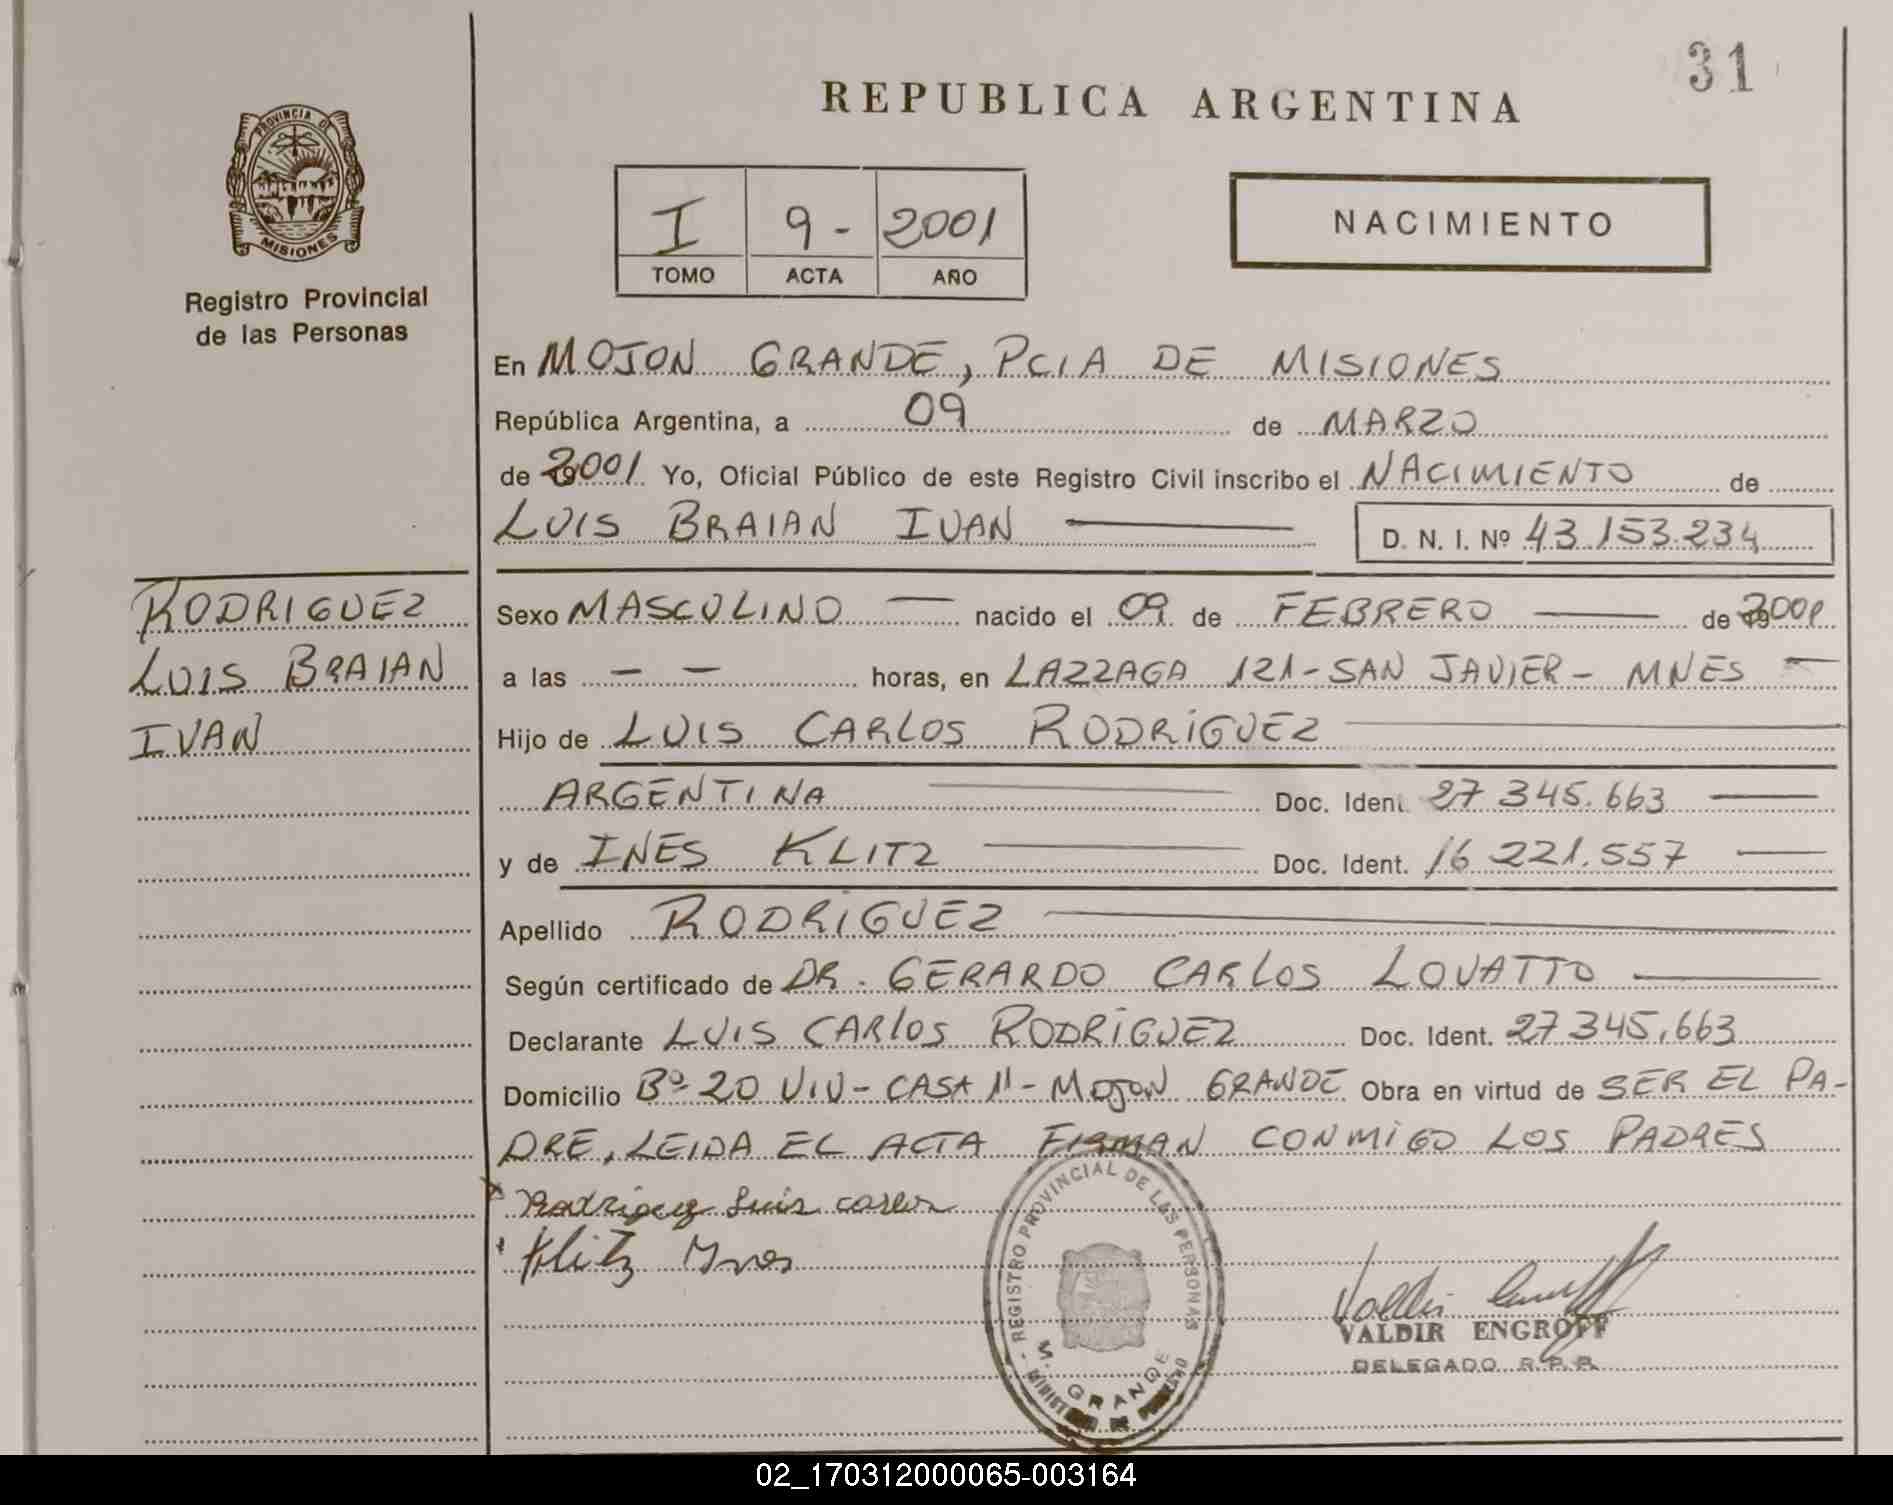 31
REPUBLICA ARGENTINA
PROVINCIA DE
MISIONES
Registro Provincial
de las Personas
I 9- 2001
TOMO ACTA AÑO
NACIMIENTO
En MOJON GRANDE, PCIA DE MISIONES
República Argentina, a 09 de MARZO
de 2001 Yo, Oficial Público de este Registro Civil inscribo el NACIMIENTO de
LUIS BRAIAN IVAN D. N. I. Nº 43.153.234
RODRIGUEZ
LUIS BRAIAN
IVAN
Sexo MASCULINO nacido el 09 de FEBRERO de 2001
a las - - horas, en LAZZAGA 121-SAN JAVIER- MNES
Hijo de LUIS CARLOS RODRIGUEZ
ARGENTINA Doc. Ident. 27 345.663
y de INES KLITZ Doc. Ident. 16 221.557
Apellido RODRIGUEZ
Según certificado de DR. GERARDO CARLOS LOVATTO
Declarante LUIS CARLOS RODRIGUEZ Doc. Ident. 27 345.663
Domicilio Bº 20 VIV- CASA 11- MOJON GRANDE Obra en virtud de SER EL PA-
DRE, LEIDA EL ACTA FIRMAN CONMIGO LOS PADRES
Rodriguez Luis Carlos
Klitz Ines
REGISTRO PROVINCIAL DE LAS PERSONAS
M. GRANDE
VALDIR ENGROFF
DELEGADO R.P.P.
02_170312000065-003164